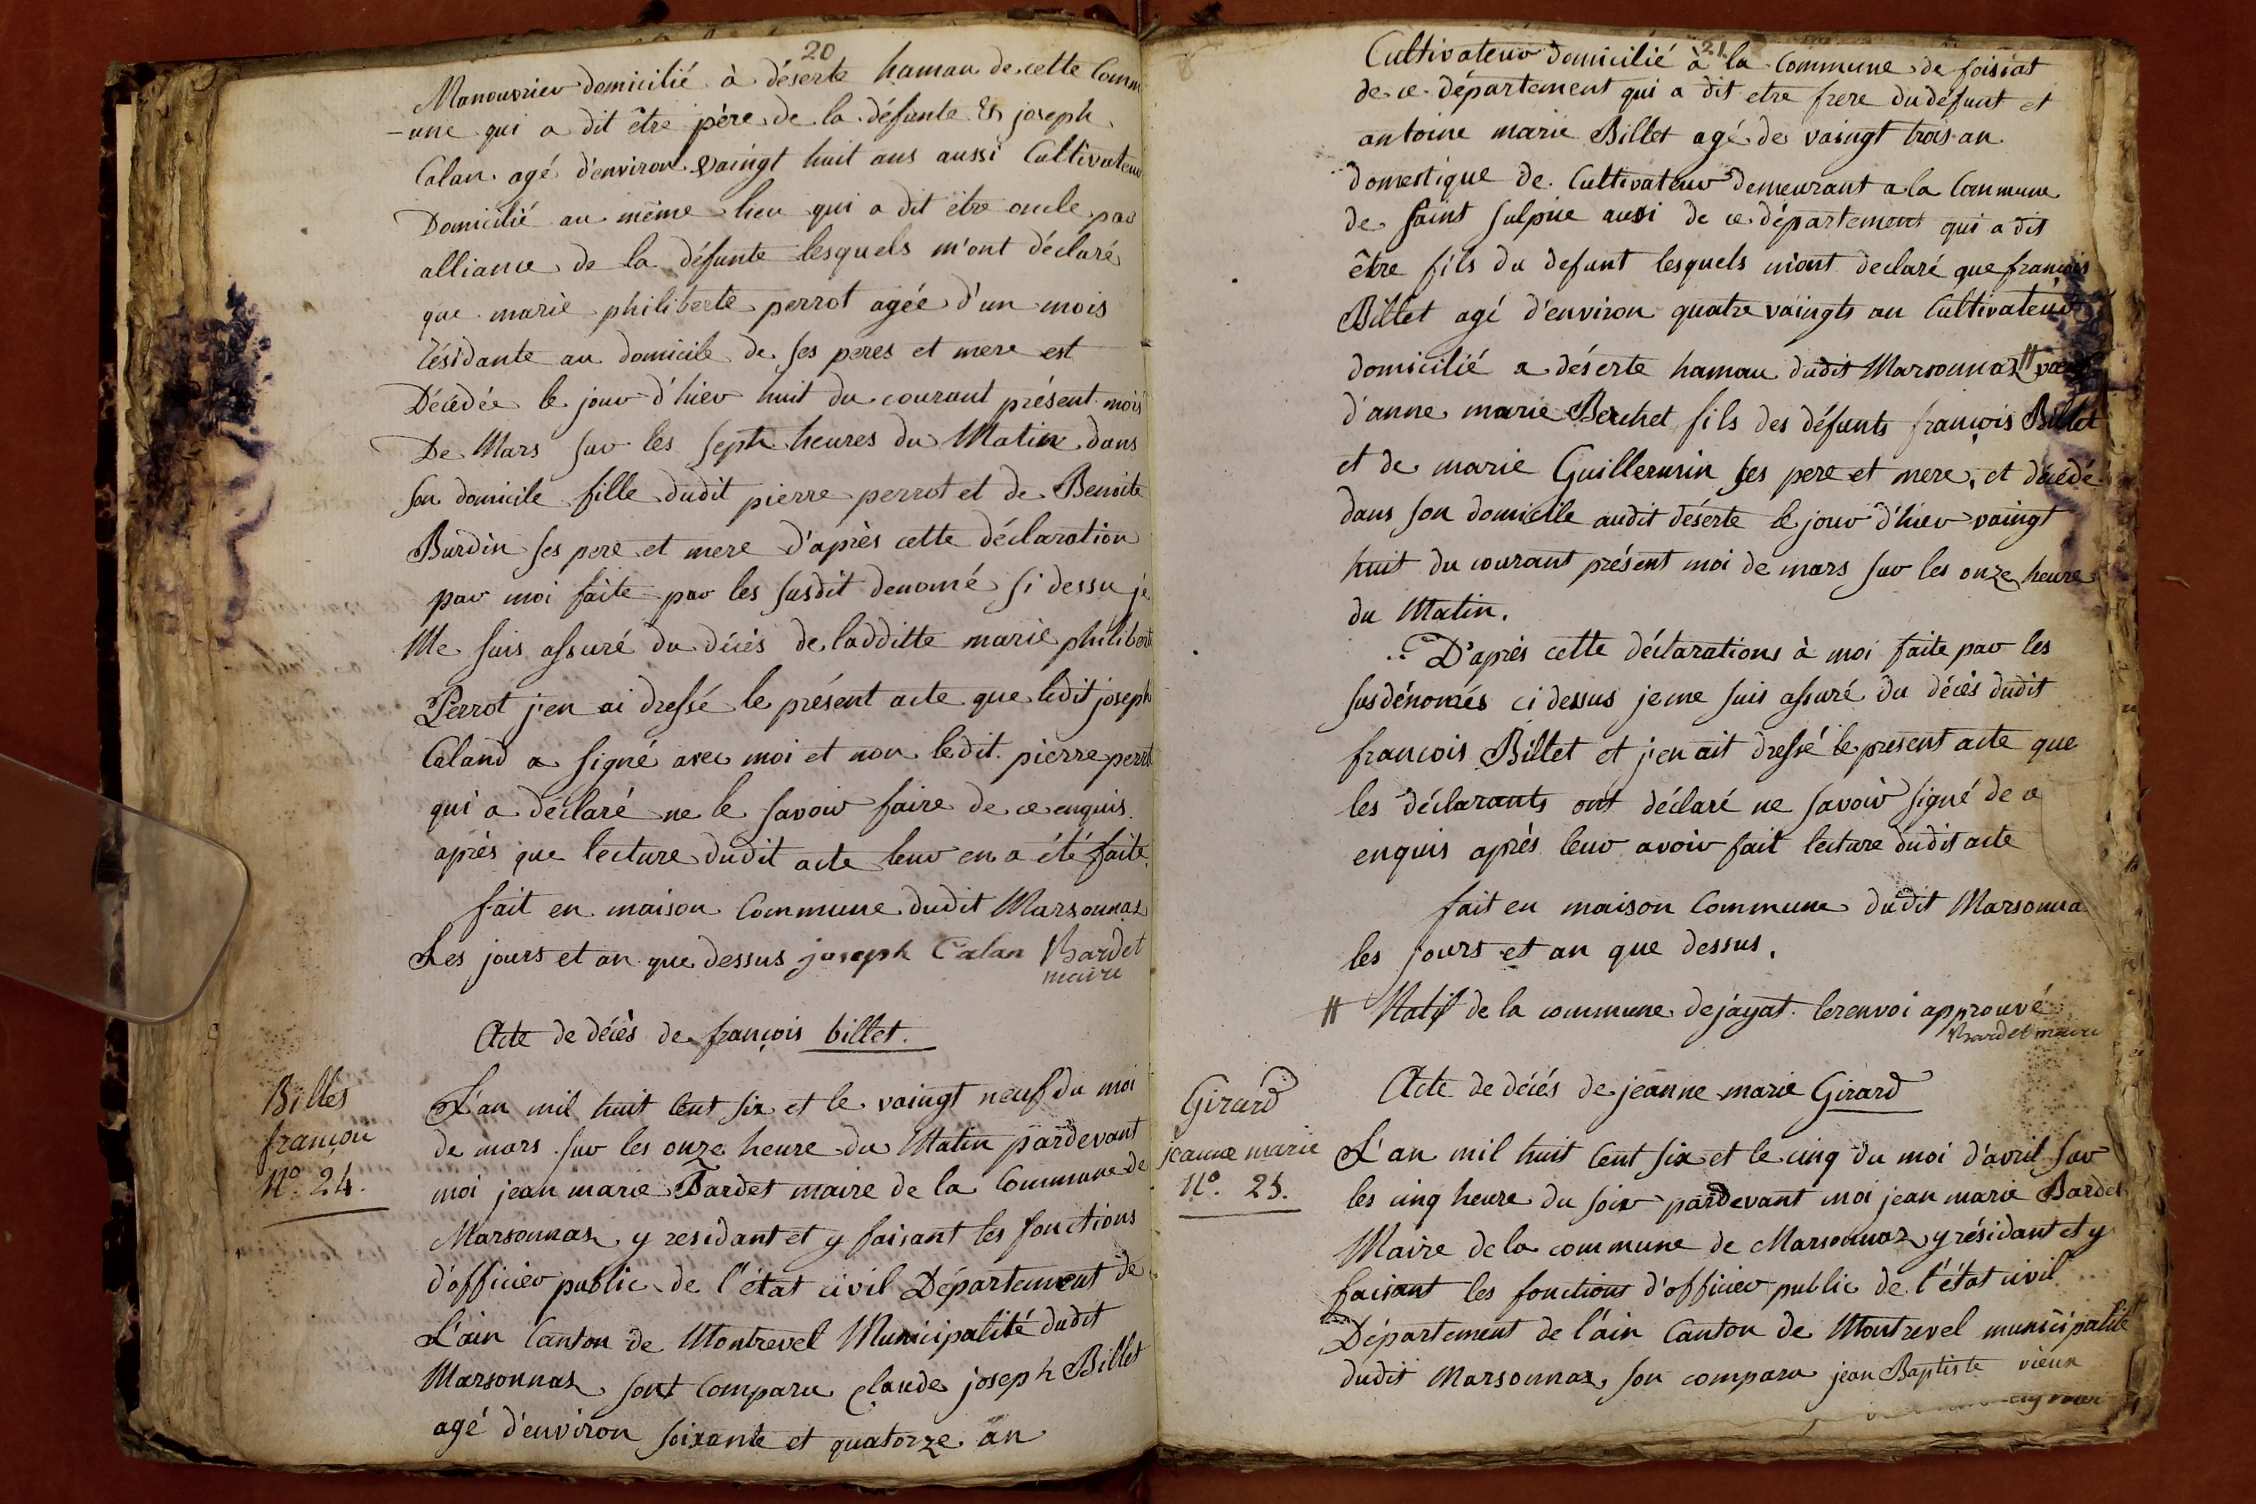 20
Manouvrier domicilié à déserte hamau de cette Comm
-une qui a dit être père de la défunte & joseph
Calan agé d'environ vaingt huit ans aussi Cultivateur
Domicilié au même lieu qui a dit être oncle par
alliance de la défunte lesquels m'ont déclaré
que marie philiberte perrot agée d'un mois
résidante au domicile de ses peres et mere est
Décédée le jour d'hier huit du courant présent mois
De Mars sur les septh heures du Matin dans
son domicile fille dudit pierre perrot et de Benoite
Burdin ses pere et mere d'après cette déclaration
par moi faite par les susdit denomé si dessu je
Me suis assuré du décès de ladditte marie philibert
Perrot j'en ai dressé le présent acte que ledit joseph
Caland a signé avec moi et non ledit pierre perrot
qui a déclaré ne le savoir faire de ce enquis
après que lecture dudit acte leur en a été faite
fait en maison Commune dudit Marsonnas
Les jours et an que dessus joseph Calan Bardet
maire
Acte de décès de françois billet.
Billet
françois
N°. 24.
L'an mil huit Cent six et le vaingt neuf du moi
de mars sur les onze heure du Matin pardevant
moi jean marie Bardet maire de la Commune de
Marsonnas y residant et y faisant les fonctions
d'officier public de l'état civil Département de
L'ain Canton de Montrevel Municipalité dudit
Marsonnas sont Comparu Claude joseph Billet
agé d'environ soixante et quatorze an
21
Cultivateur domicilié à la Commune de foissiat
de ce département qui a dit etre frere du défunt et
antoine marie Billet agé de vaingt trois an
domestique de Cultivateur demeurant a la Commune
de saint sulpice aussi de ce département qui a dit
être fils du defunt lesquels m'ont declaré que françois
Billet agé d'environ quatre vaingts an Cultivateur
domicilié a déserte hamau dudit Marsonnaz #
d'anne marie Berchet fils des défunts françois Billet
et de marie Guillermin ses pere et mere, et décédé
dans son domicile audit déserte le jour d'hier vaingt
huit du courant présent moi de mars sur les onze heure
du Matin.
D'après cette déclarations à moi faite par les
susdénomés ci dessus je me suis assuré du décès dudit
francois Billet et j'en ait dressé le present acte que
les déclarants ont déclaré ne savoir signé de ce
enquis après leur avoir fait lecture dudit acte
fait en maison Commune dudit Marsonna
les jours et an que dessus.
# Natif de la commune de jayat. le renvoi approuvé
Bardet maire
Acte de décés de jeanne marie Girard
Girard
jeanne marie
N°. 25.
L'an mil huit Cent six et le cinq du moi d'avril sur
les cinq heure du soir pardevant moi jean marie Bardet
Maire de la commune de Marsonnaz y résidant et y
faisant les fonctions d'officier public de l'état civil
Département de l'ain Canton de Montrevel municipalité
dudit Marsonnaz son comparu jean Baptiste vieux